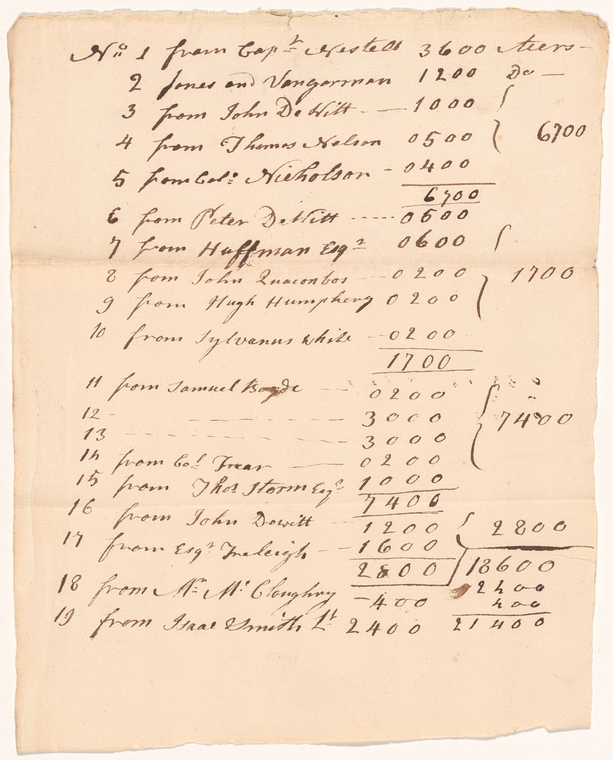 No 1 from Capt Nestell 3600 Acers—
2 Jones and Vangorman 1200 Do—
3 from John DeWitt - — 1000
4 from Thomas Nelson 0500 6700
5 from Colo Nicholson - 0400
6700
6 from Peter DeWitt ----- 0600
7 from Huffman Esqr 0600
8 from John Quaconbos — 0200 1700
9 from Hugh Humphery 0200
10 from Sylvanus White - 0200
1700
11 from Samuel 0200
12 - — 3000 7400
13 — 3000
14 from Col — 0200
15 from Thos Storm Esqr 1000
7400
16 from John Dewitt — 1200 2800
17 from Esqr Freleigh — 1600
2800 18600
18 from Mr Mc Cloughry - 400 2400
400
19 from Isaac Smith Lt 2400 21400